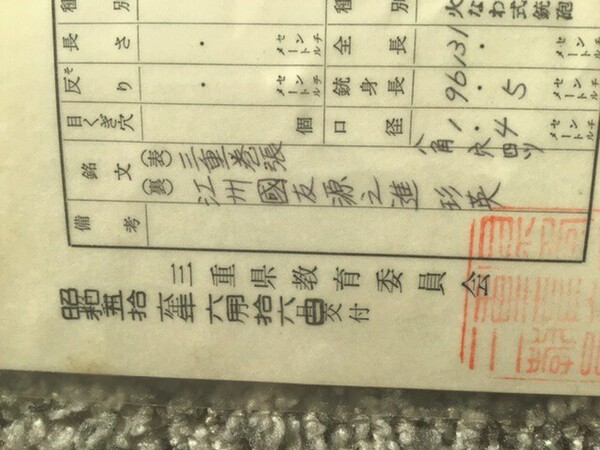 別
種別 火なわ式銃砲
長さ ・ センチメートル
全長 131・ センチメートル
反り ・ センチメートル
銃身長 96・5 センチメートル
目くぎ穴 個
口径 1・4 センチメートル
銘文 (表) 三重巻張 八角 穴四ツ
(裏) 江州國友源之進 珍英
備考
三重県教育委員会
昭和五拾六年六月拾六日交付